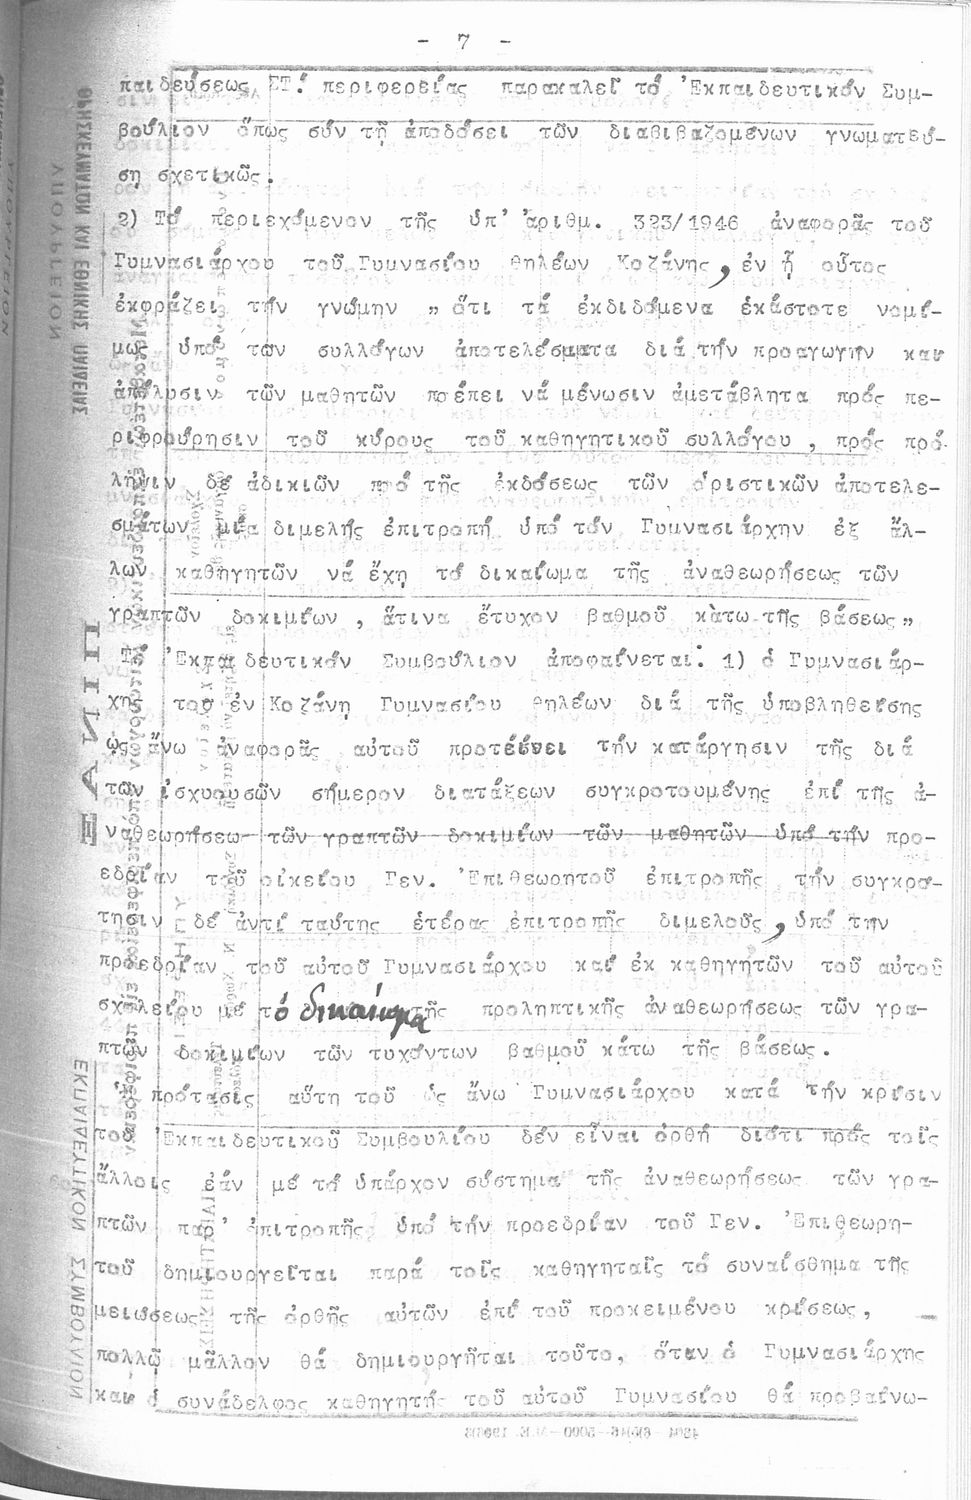 - 7 -
παιδεύσεως ΣΤ΄. περιφερείας παρακαλεῖ τό Ἐκπαιδευτικόν Συμ-
βούλιον ὅπως σύν τῇ ἀποδόσει τῶν διαβιβαζομένων γνωματεύ-
ση σχετικῶς.
2) Τό περιεχόμενον τῆς ὑπ' ἀριθμ. 323/1946 ἀναφορᾶς τοῦ
Γυμνασιάρχου τοῦ Γυμνασίου θηλέων Κοζάνης, ἐν ᾗ οὗτος
ἐκφράζει τήν γνώμην „ ὅτι τά ἐκδιδόμενα ἑκάστοτε νομί-
μως ὑπό τῶν συλλόγων ἀποτελέσματα διά τήν προαγωγήν καί
ἀπόλυσιν τῶν μαθητῶν πρέπει νά μένωσιν ἀμετάβλητα πρός πε-
ριφρούρησιν τοῦ κύρους τοῦ καθηγητικοῦ συλλόγου, πρός πρό-
ληψιν δέ ἀδικιῶν πρό τῆς ἐκδόσεως τῶν ὁριστικῶν ἀποτελε-
σμάτων μία διμελής ἐπιτροπή ὑπό τόν Γυμνασιάρχην ἐξ ἄλ-
λων καθηγητῶν νά ἔχῃ τό δικαίωμα τῆς ἀναθεωρήσεως τῶν
γραπτῶν δοκιμίων, ἅτινα ἔτυχον βαθμοῦ κάτω τῆς βάσεως„
Τό Ἐκπαιδευτικόν Συμβούλιον ἀποφαίνεται: 1) ὁ Γυμνασιάρ-
χης τοῦ ἐν Κοζάνῃ Γυμνασίου θηλέων διά τῆς ὑποβληθείσης
ὡς ἄνω ἀναφορᾶς αὐτοῦ προτείνει τήν κατάργησιν τῆς διά
τῶν ἰσχυουσῶν σήμερον διατάξεων συγκροτουμένης ἐπί τῆς ἀ-
ναθεωρήσεως τῶν γραπτῶν δοκιμίων τῶν μαθητῶν ὑπό τήν προ-
εδρίαν τοῦ οἰκείου Γεν. Ἐπιθεωρητοῦ ἐπιτροπῆς τήν συγκρό-
τησιν δέ ἀντί ταύτης ἑτέρας ἐπιτροπῆς διμελοῦς, ὑπό τήν
προεδρίαν τοῦ αὐτοῦ Γυμνασιάρχου καί ἐκ καθηγητῶν τοῦ αὐτοῦ
σχολείου μέ τό δικαίωμα τῆς προληπτικῆς ἀναθεωρήσεως τῶν γρα-
πτῶν δοκιμίων τῶν τυχόντων βαθμοῦ κάτω τῆς βάσεως.
Ἡ πρότασις αὕτη τοῦ ὡς ἄνω Γυμνασιάρχου κατά τήν κρίσιν
τοῦ Ἐκπαιδευτικοῦ Συμβουλίου δέν εἶναι ὀρθή διότι πρός τοῖς
ἄλλοις ἐάν μέ τό ὑπάρχον σύστημα τῆς ἀναθεωρήσεως τῶν γρα-
πτῶν παρ' ἐπιτροπῆς ὑπό τήν προεδρίαν τοῦ Γεν. Ἐπιθεωρη-
τοῦ δημιουργεῖται παρά τοῖς καθηγηταῖς τό συναίσθημα τῆς
μειώσεως τῆς ὀρθῆς αὐτῶν ἐπί τοῦ προκειμένου κρίσεως,
πολλῷ μᾶλλον θά δημιουργῆται τοῦτο, ὅταν ὁ Γυμνασιάρχης
καί ὁ συνάδελφος καθηγητής τοῦ αὐτοῦ Γυμνασίου θά προβαίνω-